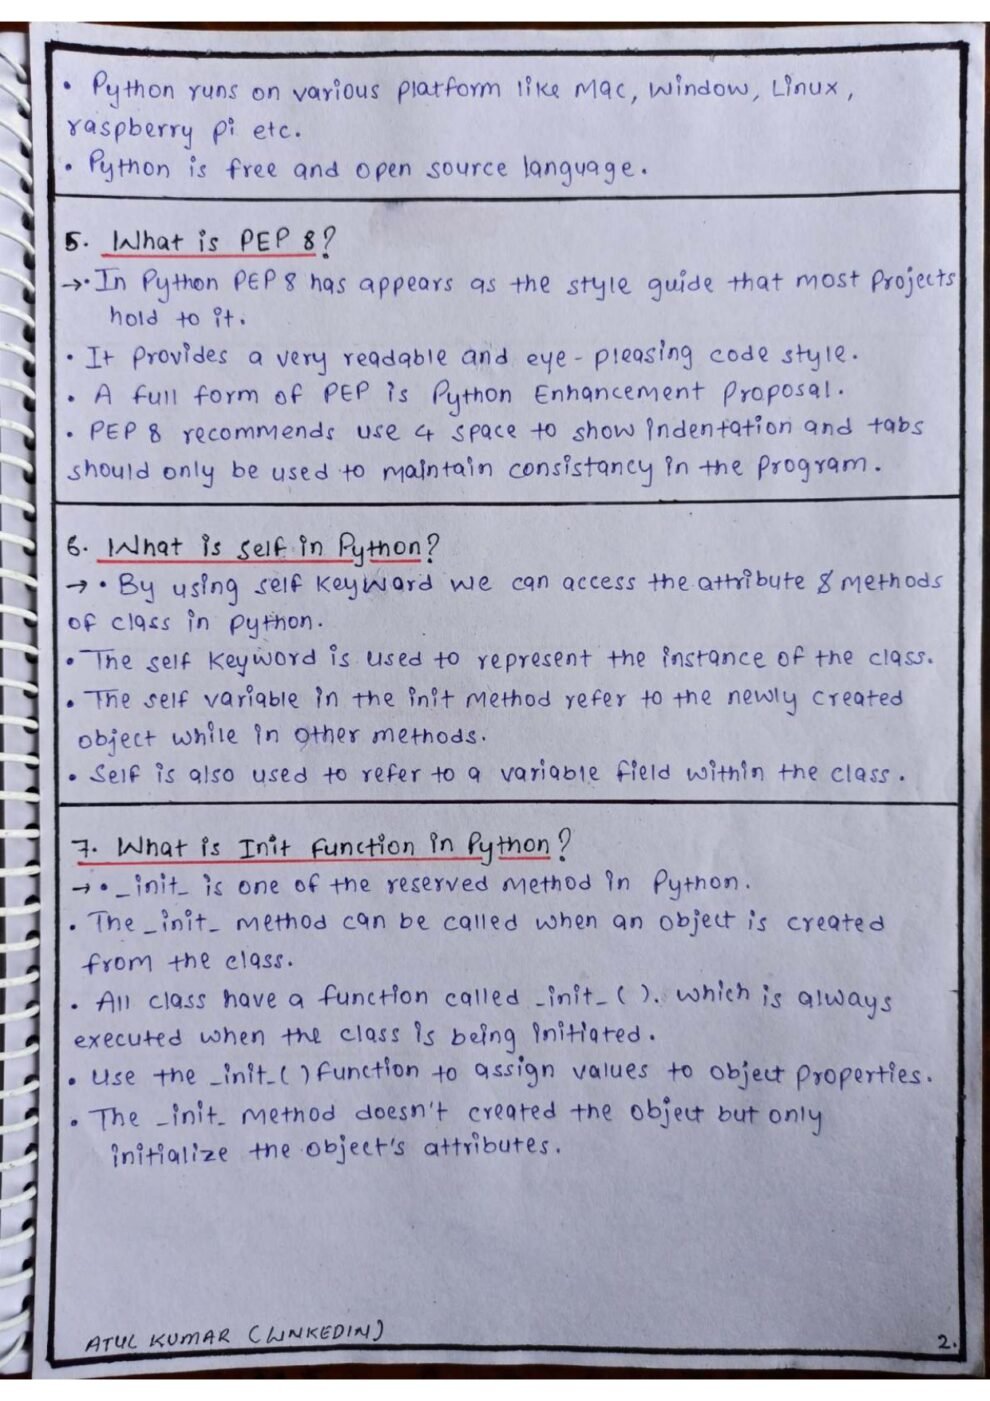 • Python runs on various platform like Mac, Window, Linux,
raspberry pi etc.
• Python is free and open source language.
5. What is PEP 8?
→• In Python PEP 8 has appears as the style guide that most Projects
hold to it.
• It Provides a very readable and eye-pleasing code style.
• A full form of PEP is Python Enhancement Proposal.
• PEP 8 recommends use 4 space to show indentation and tabs
should only be used to maintain consistancy in the Program.
6. What is self in Python?
→ • By using self Keyword we can access the attribute & methods
of class in python.
• The self Keyword is used to represent the instance of the class.
• The self variable in the init method refer to the newly created
object while in other methods.
• Self is also used to refer to a variable field within the class.
7. What is Init Function in Python?
→ • _init_ is one of the reserved method in Python.
• The _init_ method can be called when an object is created
from the class.
• All class have a function called _init_( ). which is always
executed when the class is being initiated.
• Use the _init_( ) function to assign values to object properties.
• The _init_ method doesn't created the object but only
initialize the object's attributes.
ATUL KUMAR (LINKEDIN)
2.